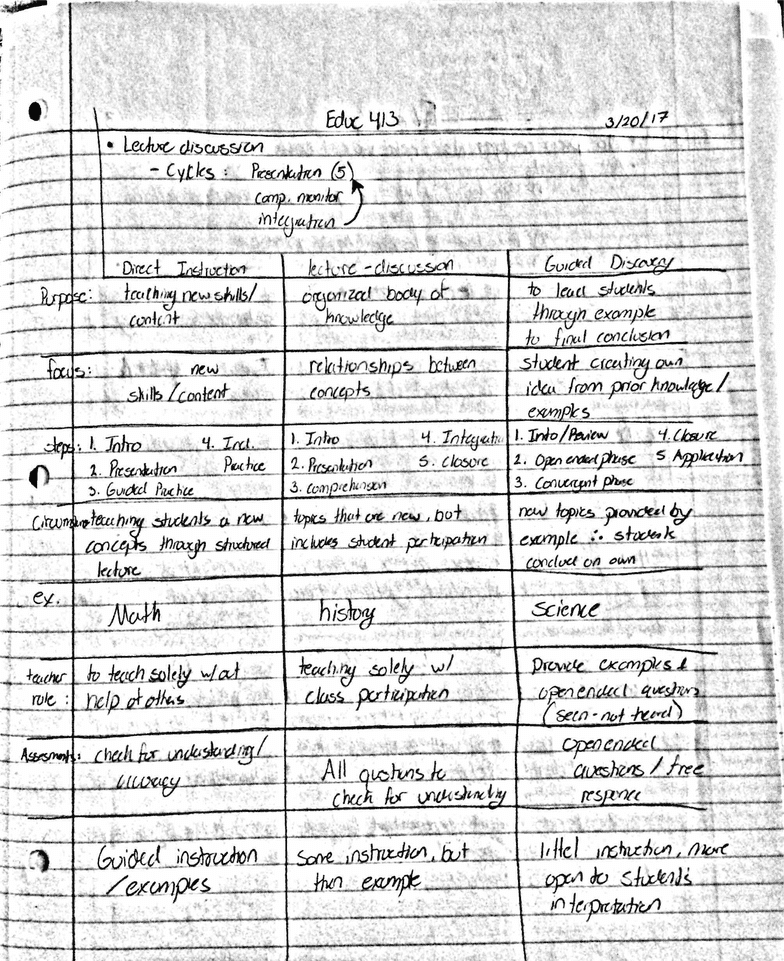 Educ 413 3/20/17
• Lecture discussion
- Cycles: Presentation (5)
comp. monitor
integration
Direct Instruction lecture-discussion Guided Discovery
Purpose: teaching new skills/ organized body of to lead students
content knowledge through example
to final conclusion
focus: new relationships between student creating own
skills/content concepts idea from prior knowledge/
examples
steps: 1. Intro 4. Ind. 1. Intro 4. Integration 1. Intro/Review 4. Closure
2. Presentation Practice 2. Presentation 5. Closure 2. Open ended phase 5 Application
3. Guided Practice 3. comprehension 3. Convergent phase
teaching students a new topics that are new, but new topics provided by
concepts through structured includes student participation example ∴ students
lecture conclude on own
ex. Math history Science
teacher to teach solely w/out teaching solely w/ Provide examples &
role: help of others class participation open ended questions
(seen-not heard)
Assesments: check for understanding/ Open ended
accuracy All questions to questions/free
check for understanding response
Guided instruction Some instruction, but littel instruction, more
/examples then example open to students
interpretation